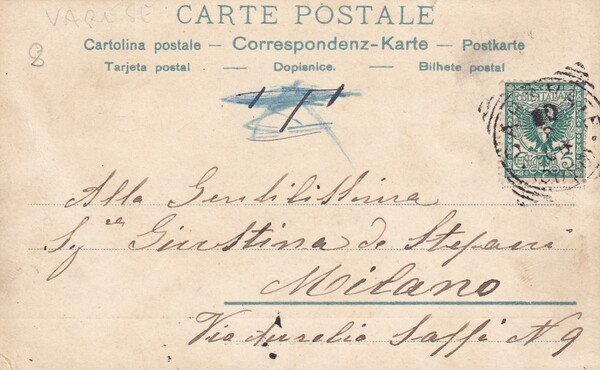 VARESE
CARTE POSTALE
8
Cartolina postale — Correspondenz-Karte — Postkarte
Tarjeta postal — Dopisnice. — Bilhete postal
POSTE ITALIANE
5
Alla Gentilissima
Sig.na Giustina de Stefani
Milano
Via Aurelio Saffi N 9